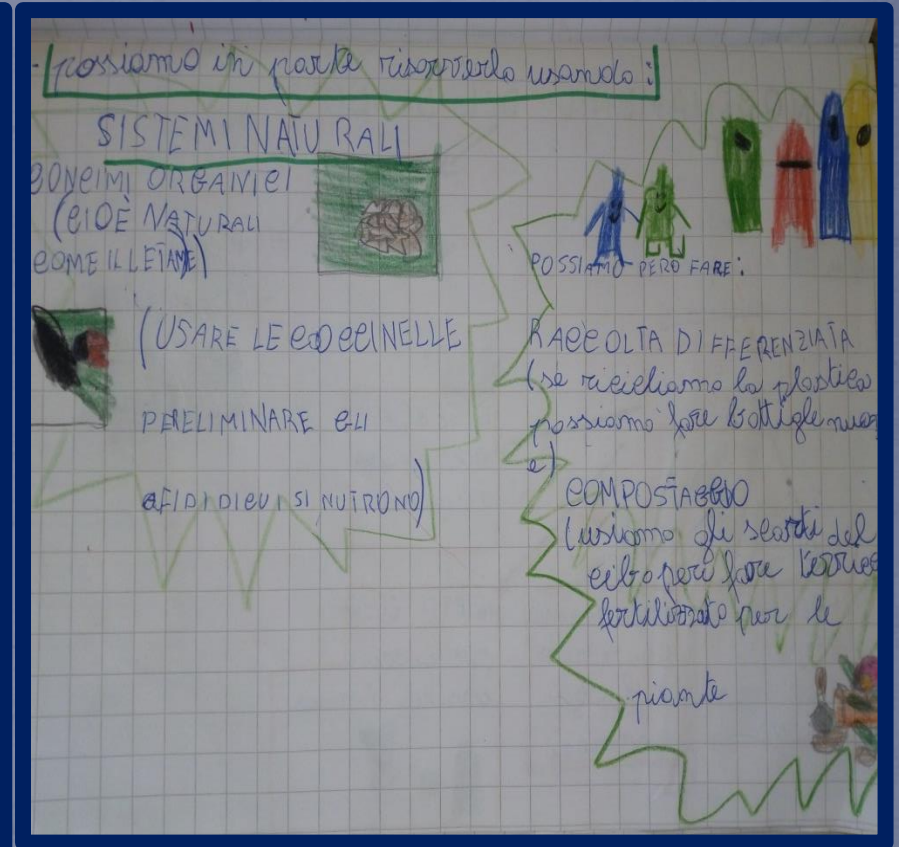 possiamo in parte risorverlo usando:
SISTEMI NATURALI
CONCIMI ORGANICI
(CIOÈ NATURALI
COME IL LETAME)
(USARE LE COCCINELLE
PER ELIMINARE GLI
AFIDI DI CUI SI NUTRONO)
POSSIAMO PERÒ FARE:
RACCOLTA DIFFERENZIATA
(se ricicliamo la plastica
possiamo fare bottigle nuov
e)
COMPOSTAGGIO
(usiamo gli scarti del
cibo per fare terricc
fertilizzato per le
piante